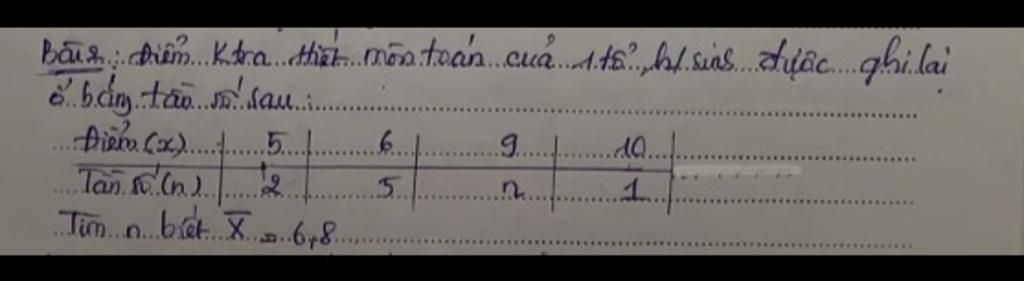 Bài 2: Điểm Ktra 1 tiết môn toán của 1 tổ h/sinh được ghi lại
ở bảng tần số sau:
Điểm (x) 5 6 9 10
Tần số (n) 2 5 n 1
Tìm n biết X̅ = 6,8